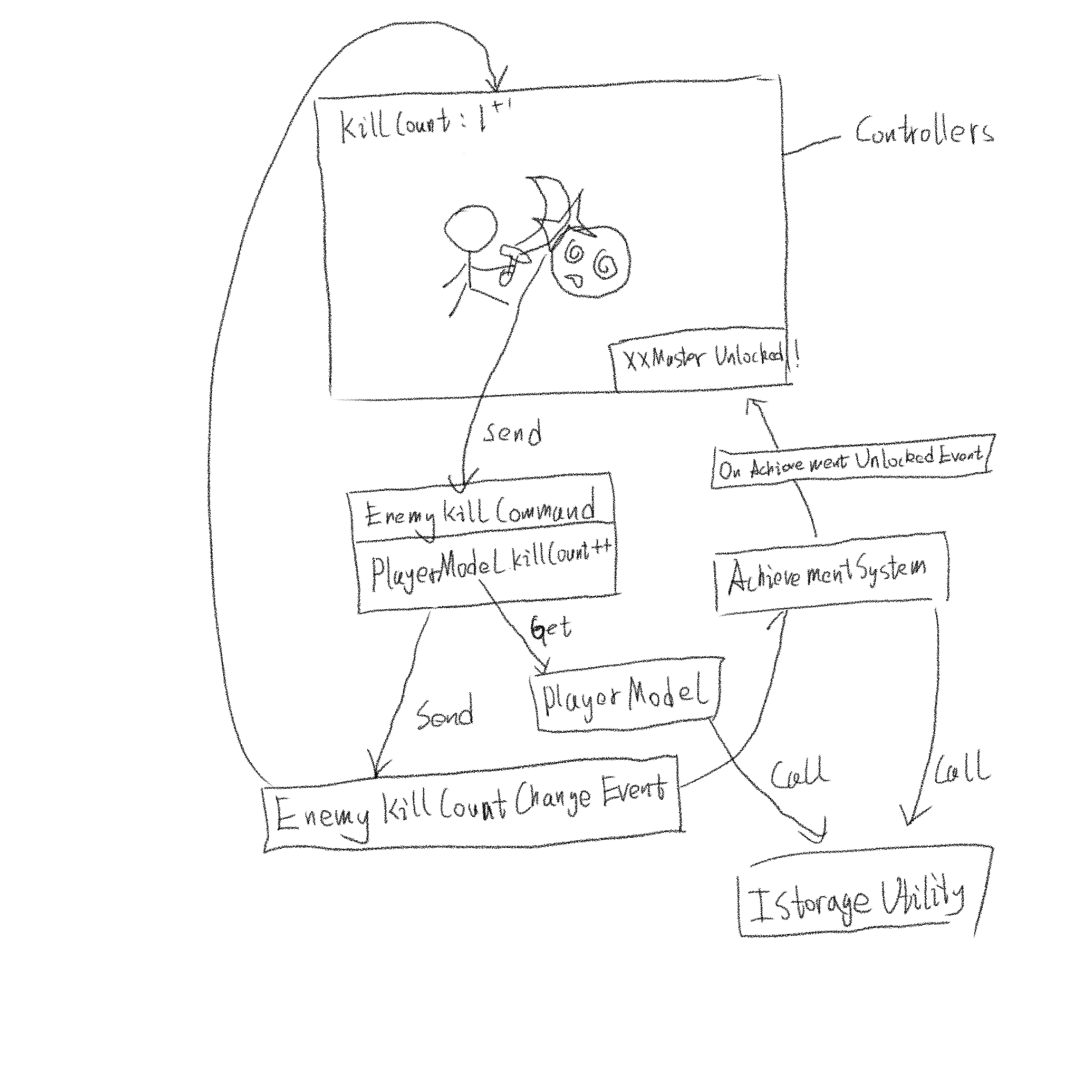 KillCount: 1 +1
Controllers
XXMaster Unlocked!
Send
On Achievement Unlocked Event
EnemyKillCommand
PlayerModel killCount++
AchievementSystem
Get
PlayerModel
Send
Call
Call
Enemy Kill Count Change Event
IStorage Utility